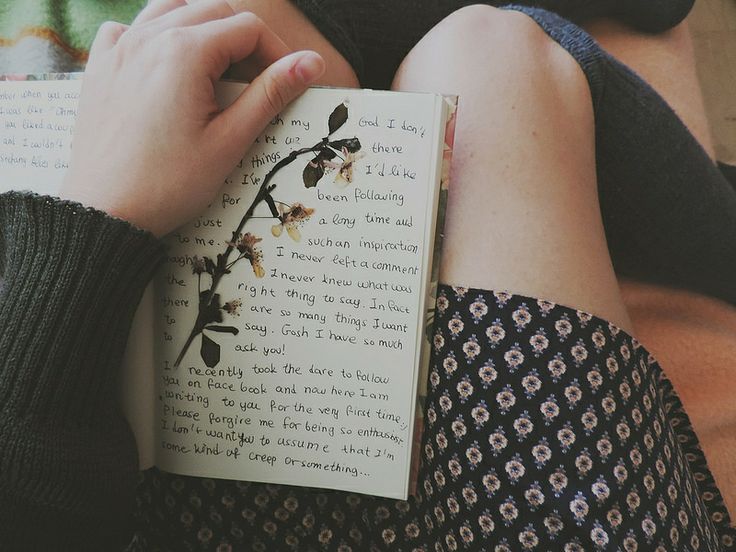 mber when you acc
I was like "Oh my
you liked a coup
and I couldn't
my God I don't
there
things I'd like
I've been following
for a long time and
just such an inspiration
to me. I never left a comment
I never knew what was
the right thing to say. In fact
there are so many things I want
to say. Gosh I have so much
to ask you!
I recently took the dare to follow
you on face book and now here I am
writing to you for the very first time :)
Please forgive me for being so enthusiastic
I don't want you to assume that I'm
some kind of creep or something...